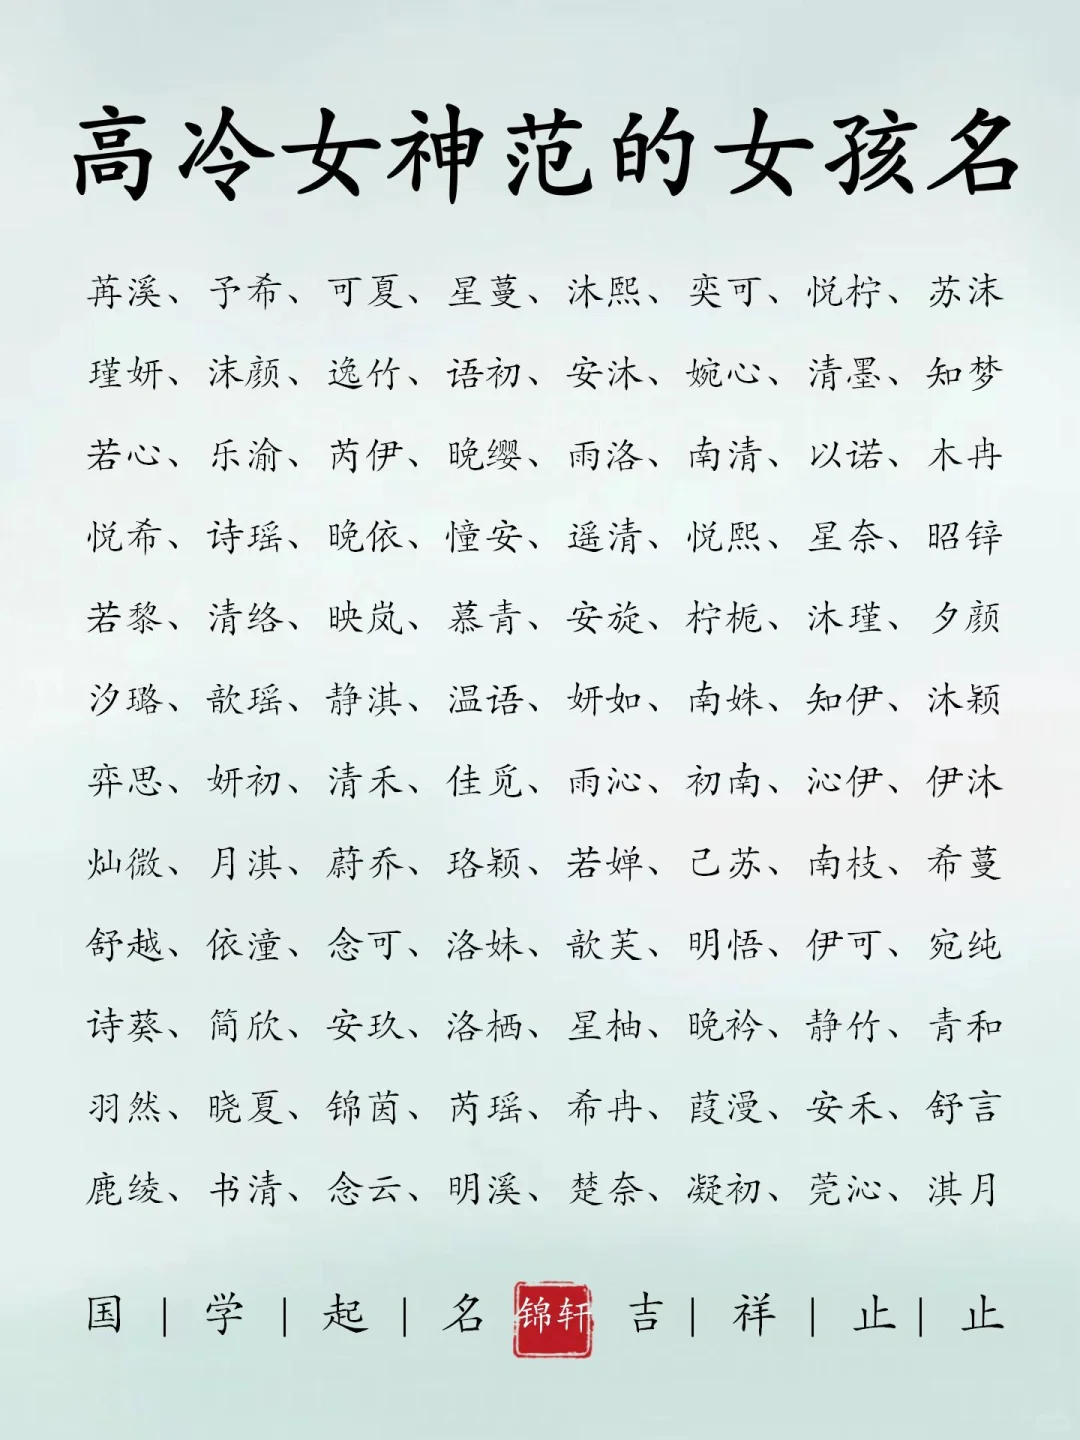 高冷女神范的女孩名
苒溪、予希、可夏、星蔓、沐熙、奕可、悦柠、苏沫
瑾妍、沫颜、逸竹、语初、安沐、婉心、清墨、知梦
若心、乐渝、芮伊、晚缨、雨洛、南清、以诺、木冉
悦希、诗瑶、晚依、憧安、遥清、悦熙、星奈、昭锌
若黎、清络、映岚、慕青、安旋、柠栀、沐瑾、夕颜
汐璐、歆瑶、静淇、温语、妍如、南姝、知伊、沐颖
弈思、妍初、清禾、佳觅、雨沁、初南、沁伊、伊沐
灿微、月淇、蔚乔、珞颖、若婵、己苏、南枝、希蔓
舒越、依潼、念可、洛妹、歆芙、明悟、伊可、宛纯
诗葵、简欣、安玖、洛栖、星柚、晚衿、静竹、青和
羽然、晓夏、锦茵、芮瑶、希冉、葭漫、安禾、舒言
鹿绫、书清、念云、明溪、楚奈、凝初、莞沁、淇月
国|学|起|名 锦轩 吉|祥|止|止